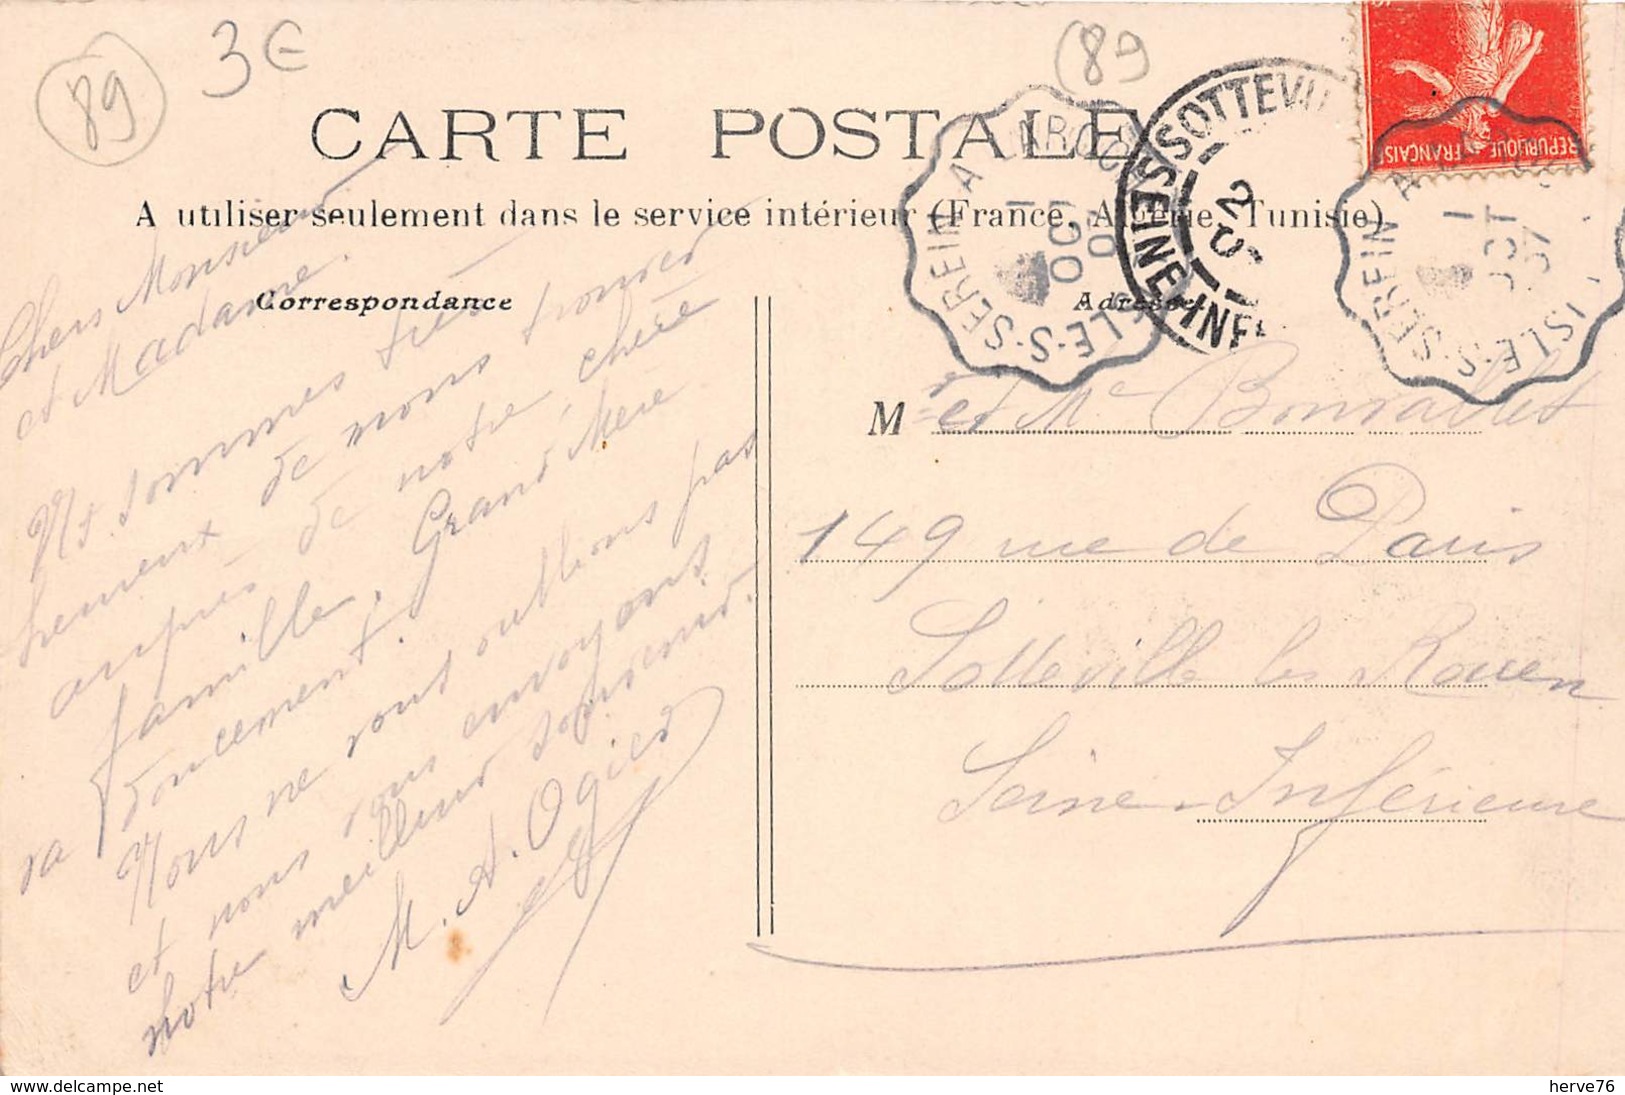 89
3€
(89
CARTE POSTALE
A utiliser seulement dans le service intérieur (France, Algérie, Tunisie)
Correspondance
Adresse
RÉPUBLIQUE FRANÇAISE
SOTTEVIL
SEINE-INF
ISLE-S-SEREIN A LAROCHE
1
OCT
07
ISLE-S-SEREIN A
1
OCT
07
Chers Monsieur
et Madame.
Ns sommes très
heureux de nous trouver
auprès de notre chère
famille, Grand Mère
va doucement.
Nous ne vous oublions pas
et nous vous envoyons
notre meilleur souvenir.
M. A. Ogier
M r et Me Bonvallet
149 rue de Paris
Sotteville les Rouen
Seine-Inférieure
www.delcampe.net
herve76